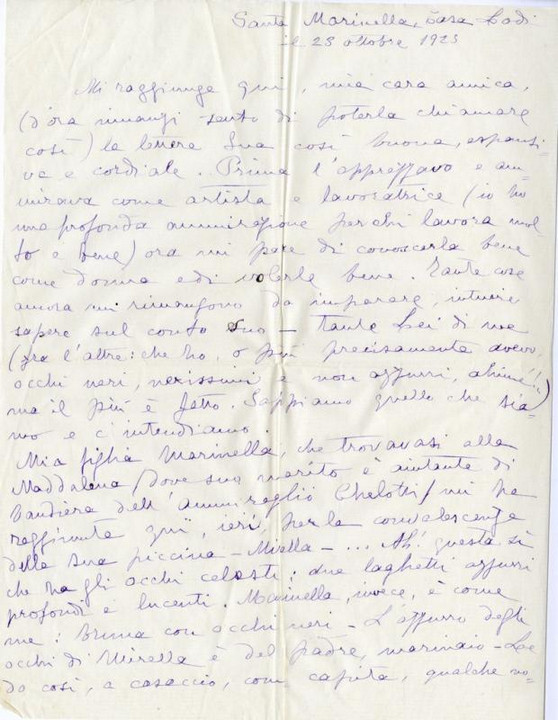 Santa Marinella, Casa Lodi
il 23 ottobre 1923
Mi raggiunge qui, mia cara amica,
(d'ora innanzi sento di poterla chiamare
così) la lettera Sua così buona, espansi-
va e cordiale. Prima l'apprezzavo e am-
miravo come artista e lavoratrice (io ho
una profonda ammirazione per chi lavora mol-
to e bene) ora mi pare di conoscerla bene
come donna e di volerle bene. Tante cose
ancora mi rimangono da imparare, intuire
sapere sul conto suo – tante Lei di me
(fra l'altre: che ho, o più precisamente avevo,
occhi neri, nerissimi e non azzurri, ahimé!!)
ma il più è fatto. Sappiamo quello che sia-
mo e c'intendiamo.
Mia figlia Marinella, che trovavasi alla
Maddalena (dove suo marito è aiutante di
Bandiera dell'Ammiraglio Chelotti) mi ha
raggiunta qui, ieri, per la convalescenza
della sua piccina – Mirella – ... Ah! questa sì
che ha gli occhi celesti: due laghetti azzurri
profondi e lucenti. Marinella, invece, è come
me: bruna con occhi neri – L'azzurro degli
occhi di Mirella è del padre, marinaio –
do così, a casaccio, come capita, qualche no-